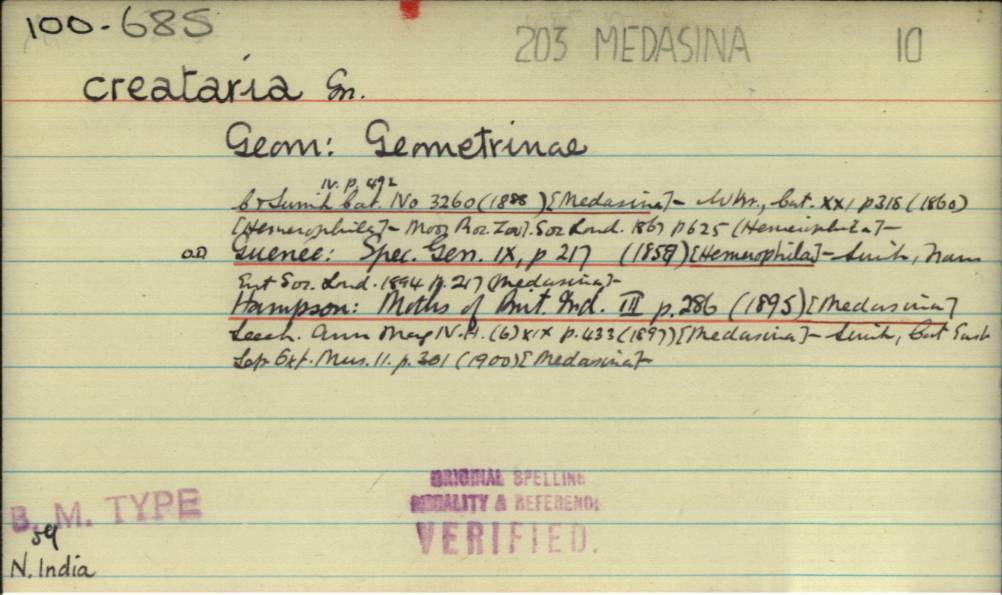 100-685
203 MEDASINA 10
creataria Gn.
Geom: Geometrinae
IV. p. 492
C & Swinh Cat. No 3260 (1888) [Medasina] - Wkr., Cat. XXI p 318 (1860)
[Hemerophila] - Moor Proc Zool. Soc Lond. 1867 p 625 (Hemerophila] -
OD Guenée: Spec. Gen. IX, p 217 (1858) [Hemerophila] - Swinh, Trans
Ent Soc. Lond. 1894 p. 217 [Medasina] -
Hampson: Moths of Brit. Ind. III p. 286 (1895) [Medasina]
Leech. Ann Mag N.H. (6) XIX p. 433 (1897) [Medasina] - Swinh, Cat East
Lep Oxf. Mus. 11. p. 301 (1900) [Medasina] -
ORIGINAL SPELLING
LOCALITY & REFERENCE
VERIFIED.
B. M. TYPE
N. India